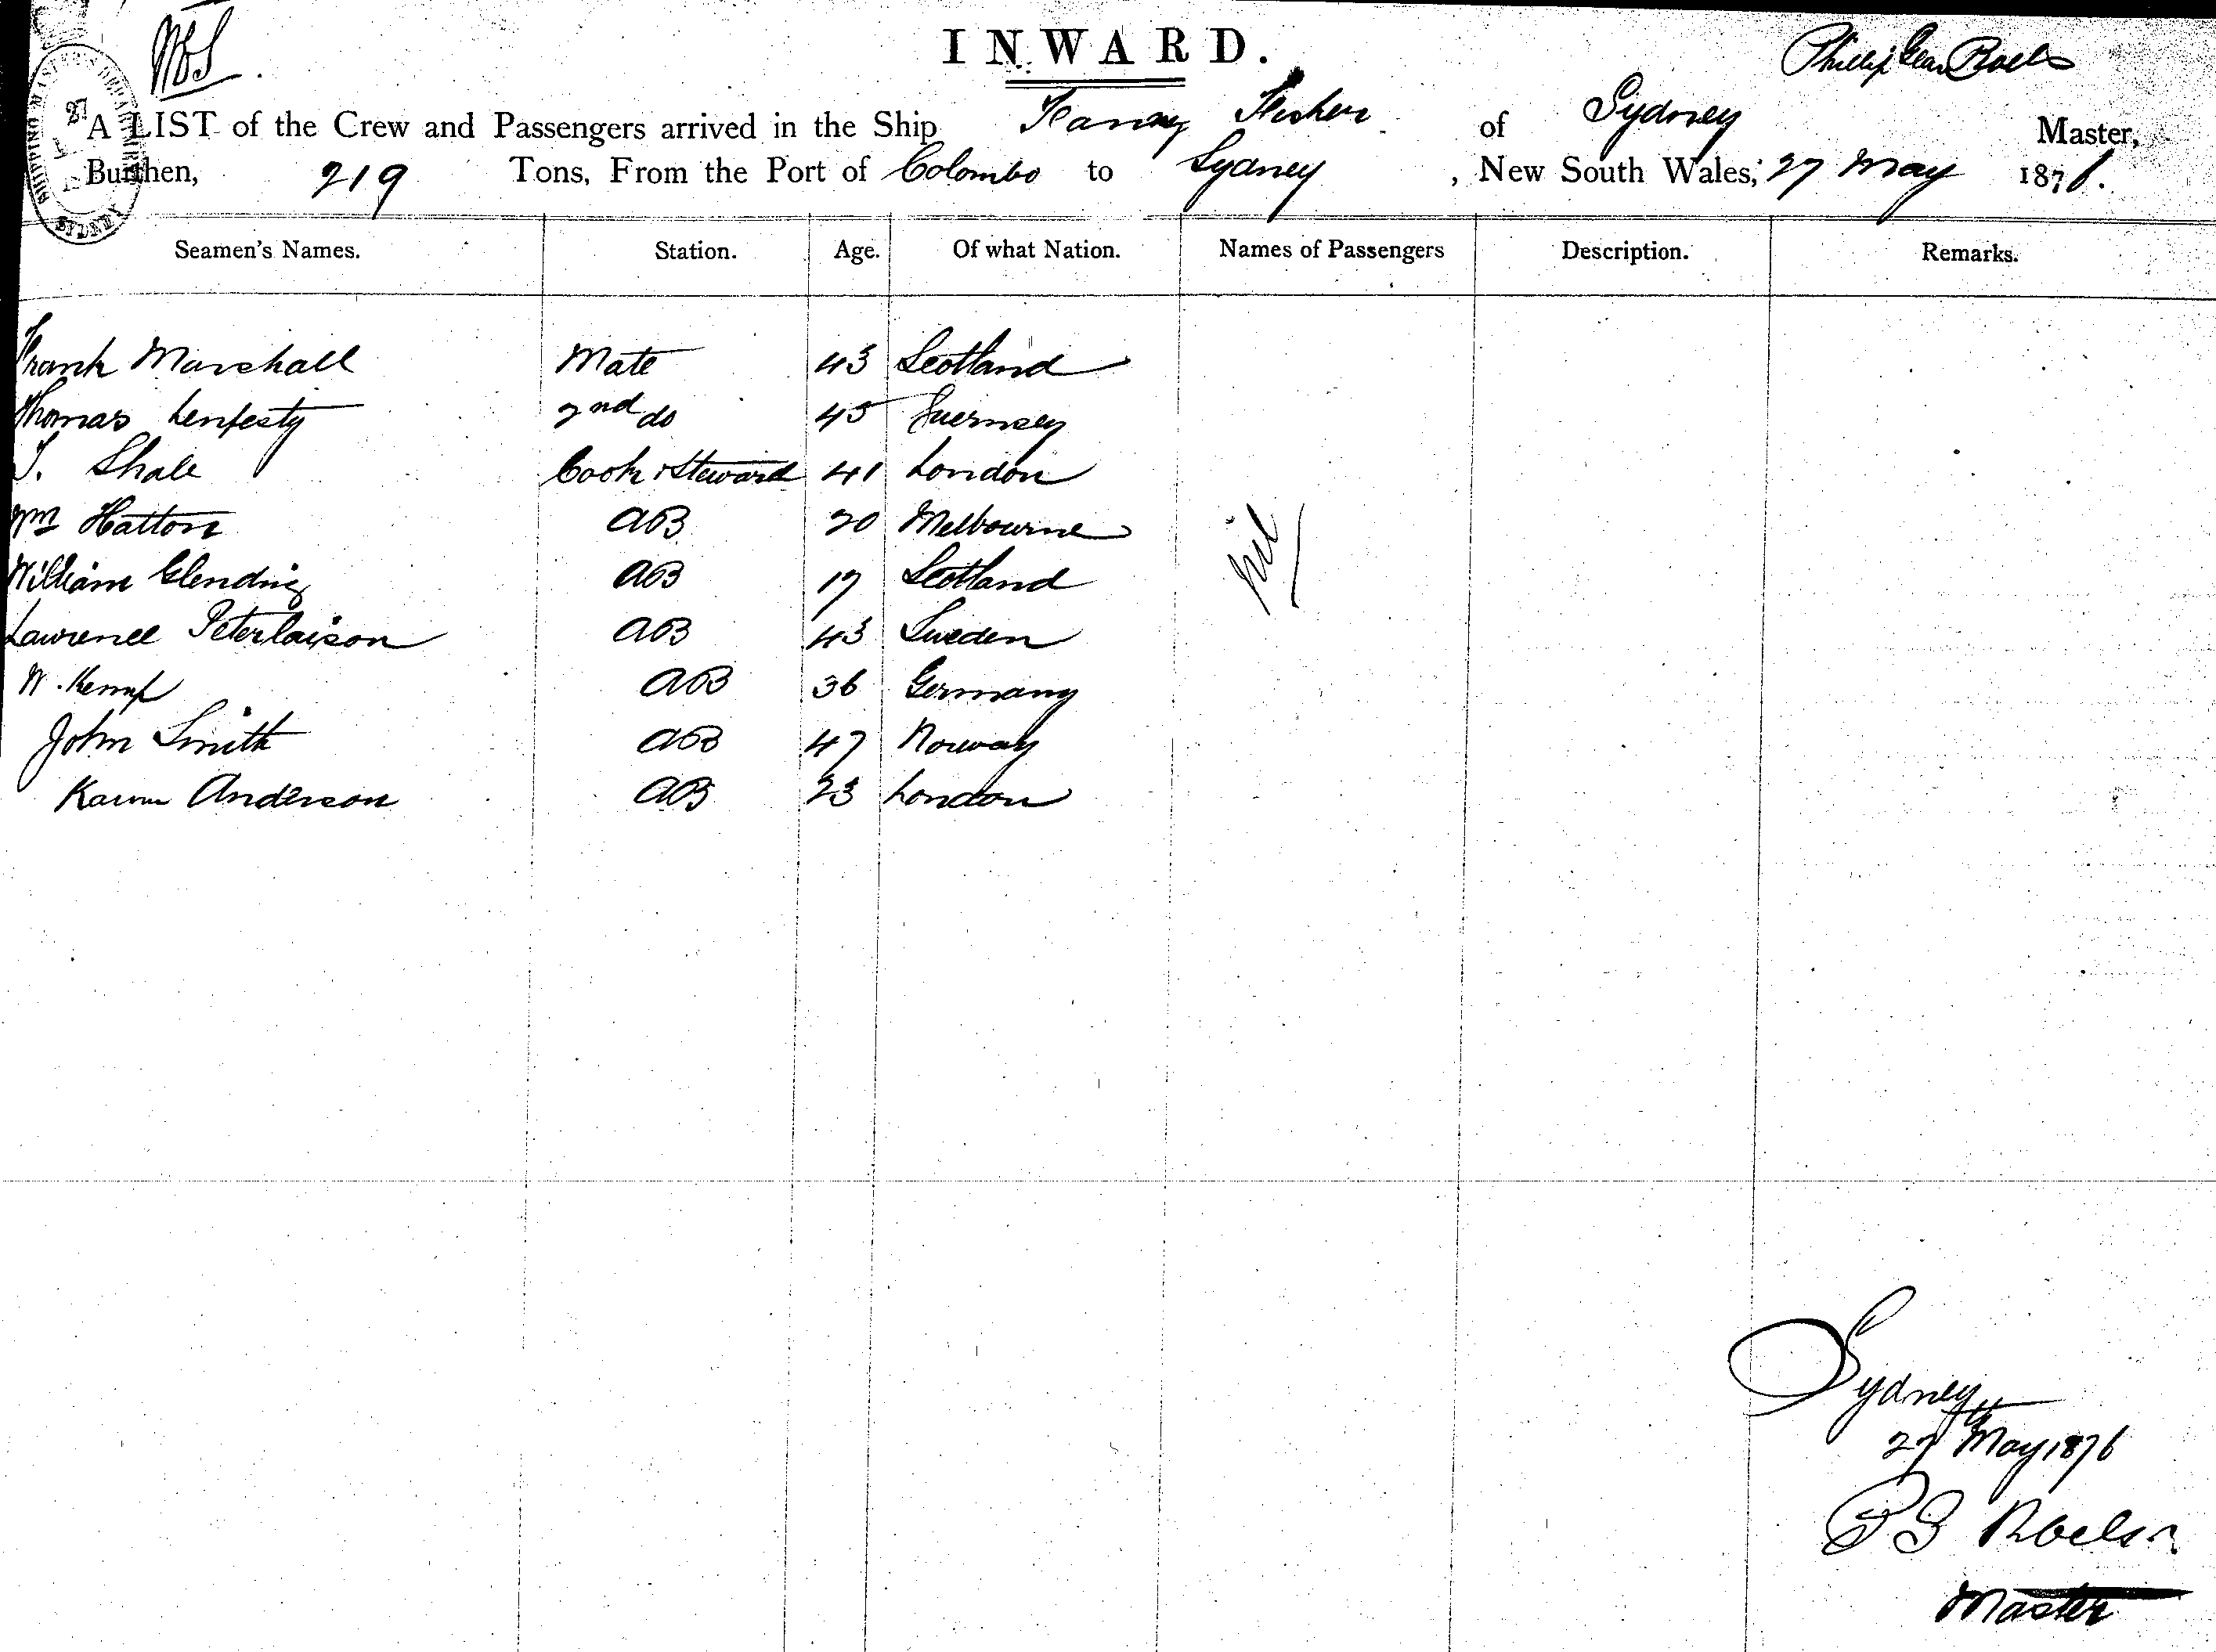 INWARD.
A LIST of the Crew and Passengers arrived in the Ship Fanny Fisher of Sydney Phillip Master,
Burthen, 219 Tons, From the Port of Colombo to Sydney, New South Wales, 27 May 1876.
Seamen's Names. Station. Age. Of what Nation. Names of Passengers Description. Remarks.
Frank Marshall Mate 43 Scotland
Thomas Lenfesty 2nd do 45 Guernsey
Shale Cook & Steward 41 London
Wm Hatton AB 20 Melbourne
nil
William Glending AB 17 Scotland
Lawrence Peterlaison AB 43 Sweden
W. Kemp AB 36 Germany
John Smith AB 47 Norway
Anderson AB 23 London
Sydney
27th May 1876
Master
SYDNEY